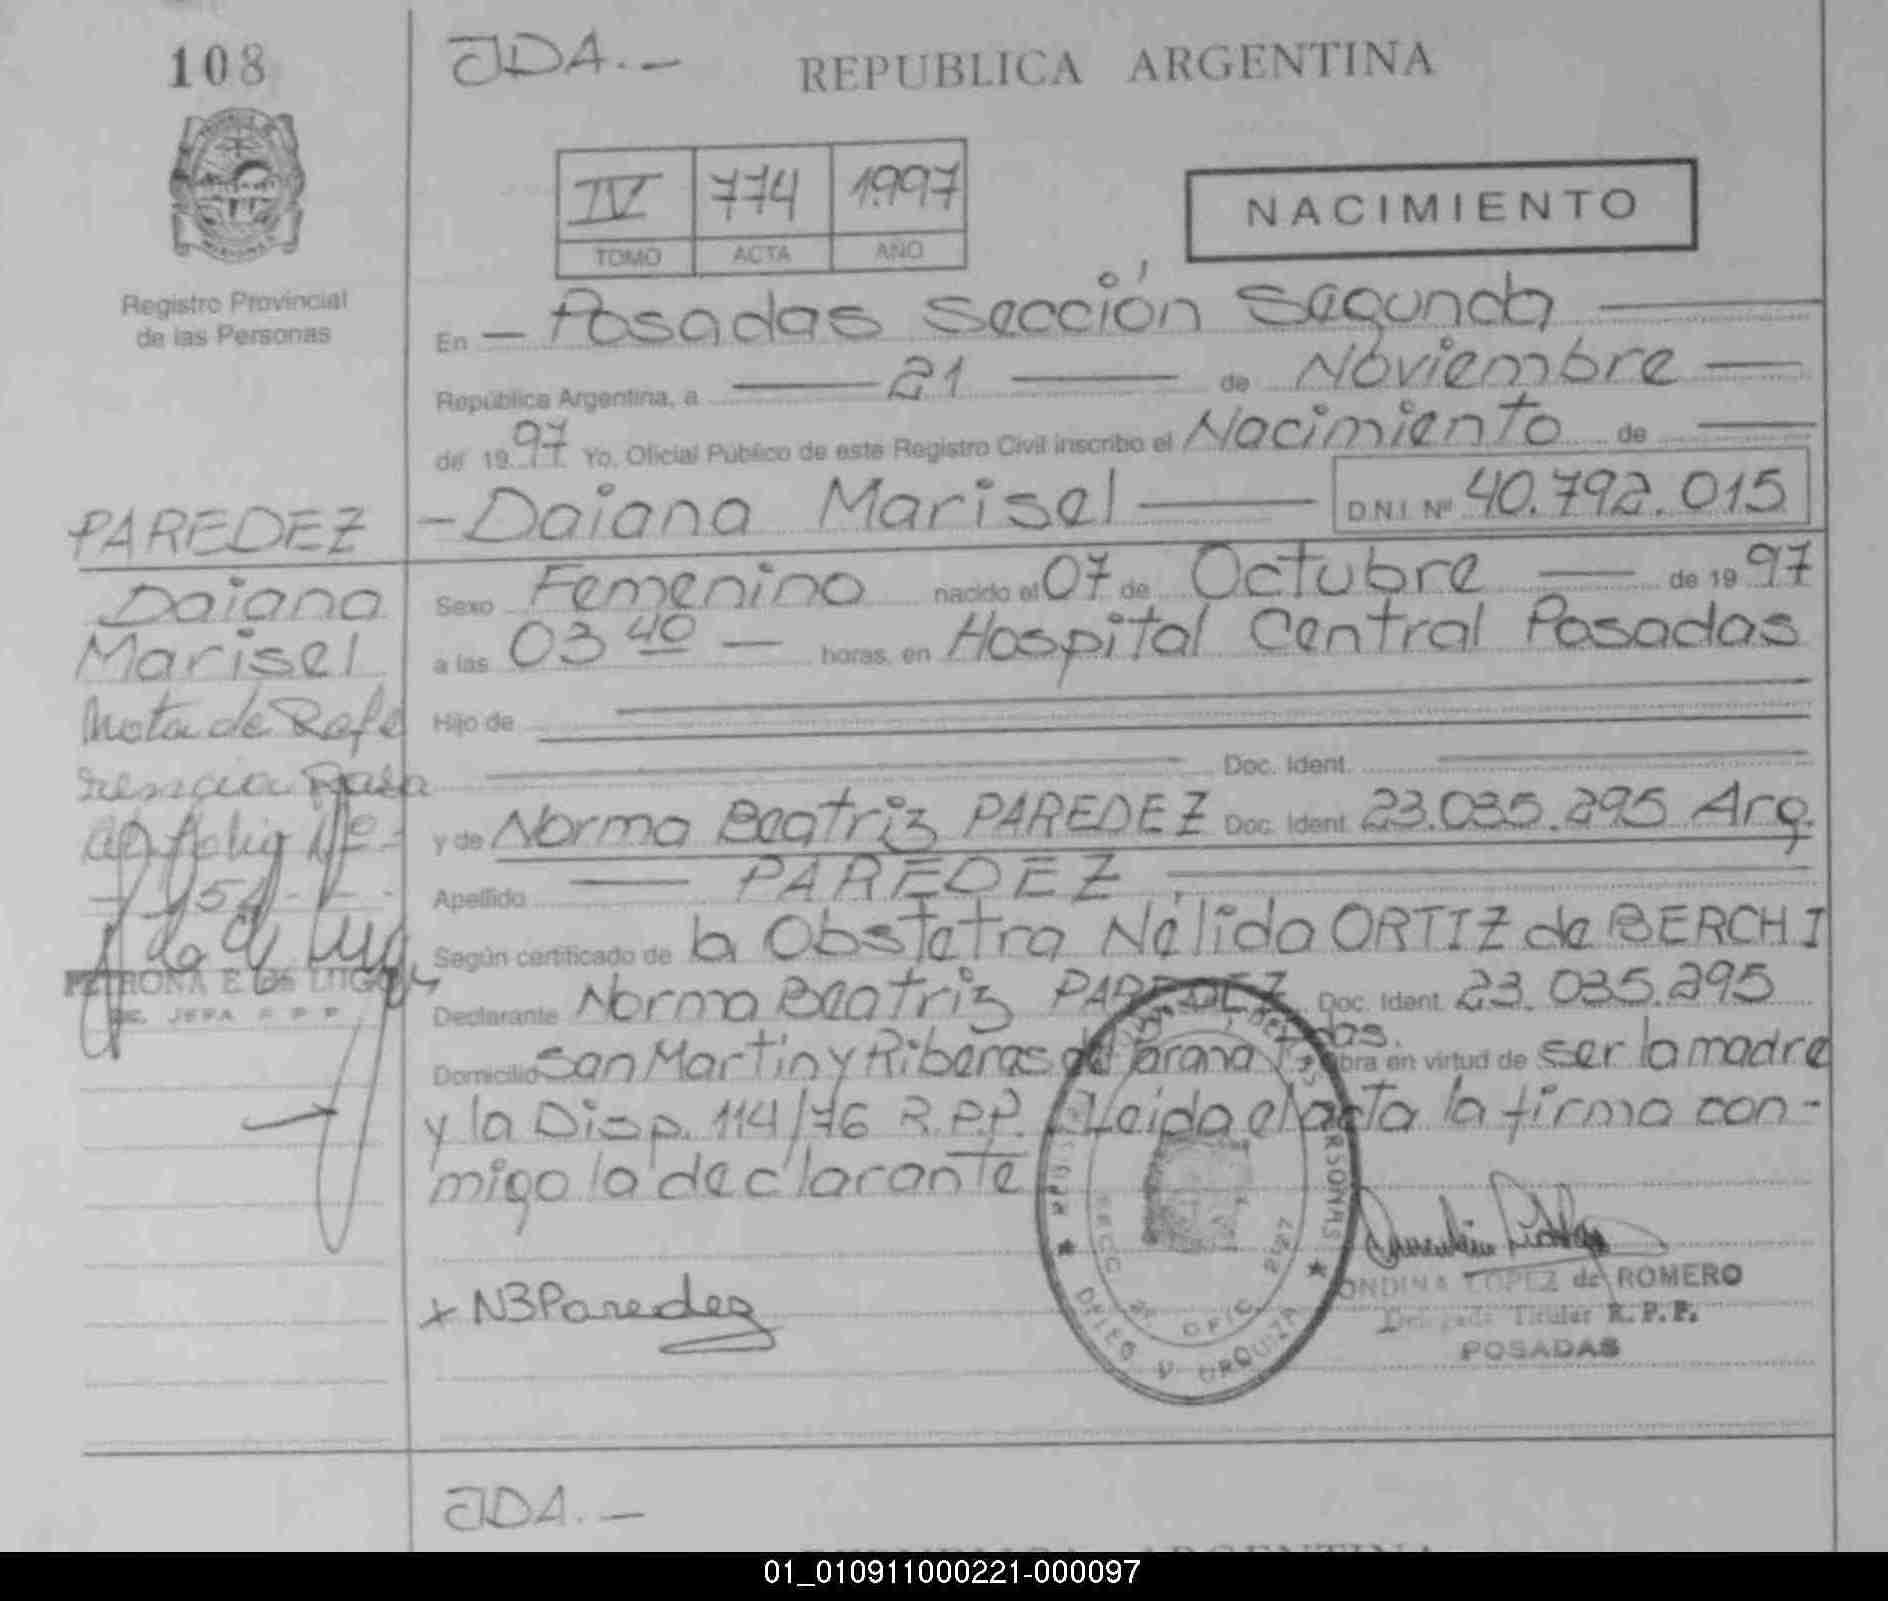 108
JDA.-
REPUBLICA ARGENTINA
IV 774 1997
TOMO ACTA AÑO
NACIMIENTO
Registro Provincial
de las Personas
En - Posadas Sección Segunda
República Argentina, a 21 de Noviembre
de 1997 Yo, Oficial Público de este Registro Civil inscribo el Nacimiento de
- Daiana Marisel D.N.I. Nº 40.792.015
PAREDEZ
Daiana
Marisel
Nota de Refe
rencia Pasa
al folio Nº
PETRONA E. de LUGO
JEFA R P P
Sexo Femenino nacido el 07 de Octubre de 1997
a las 03 40 horas, en Hospital Central Posadas
Hijo de
Doc. Ident.
y de Norma Beatriz PAREDEZ Doc. Ident. 23.035.295 Arg.
Apellido PAREDEZ
Según certificado de la Obstetra Nélida ORTIZ de BERCHI
Declarante Norma Beatriz PAREDEZ Doc. Ident. 23.035.295
Domicilio San Martin y Riberas del Parana Pdas. Obra en virtud de ser la madre
y la Disp. 114/76 R.P.P. Leida el acta la firma con-
migo la declarante
x NBParedez
ONDINA LOPEZ de ROMERO
Delegada Titular R.P.P.
POSADAS
JDA.-
REPUBLICA ARGENTINA
01_010911000221-000097